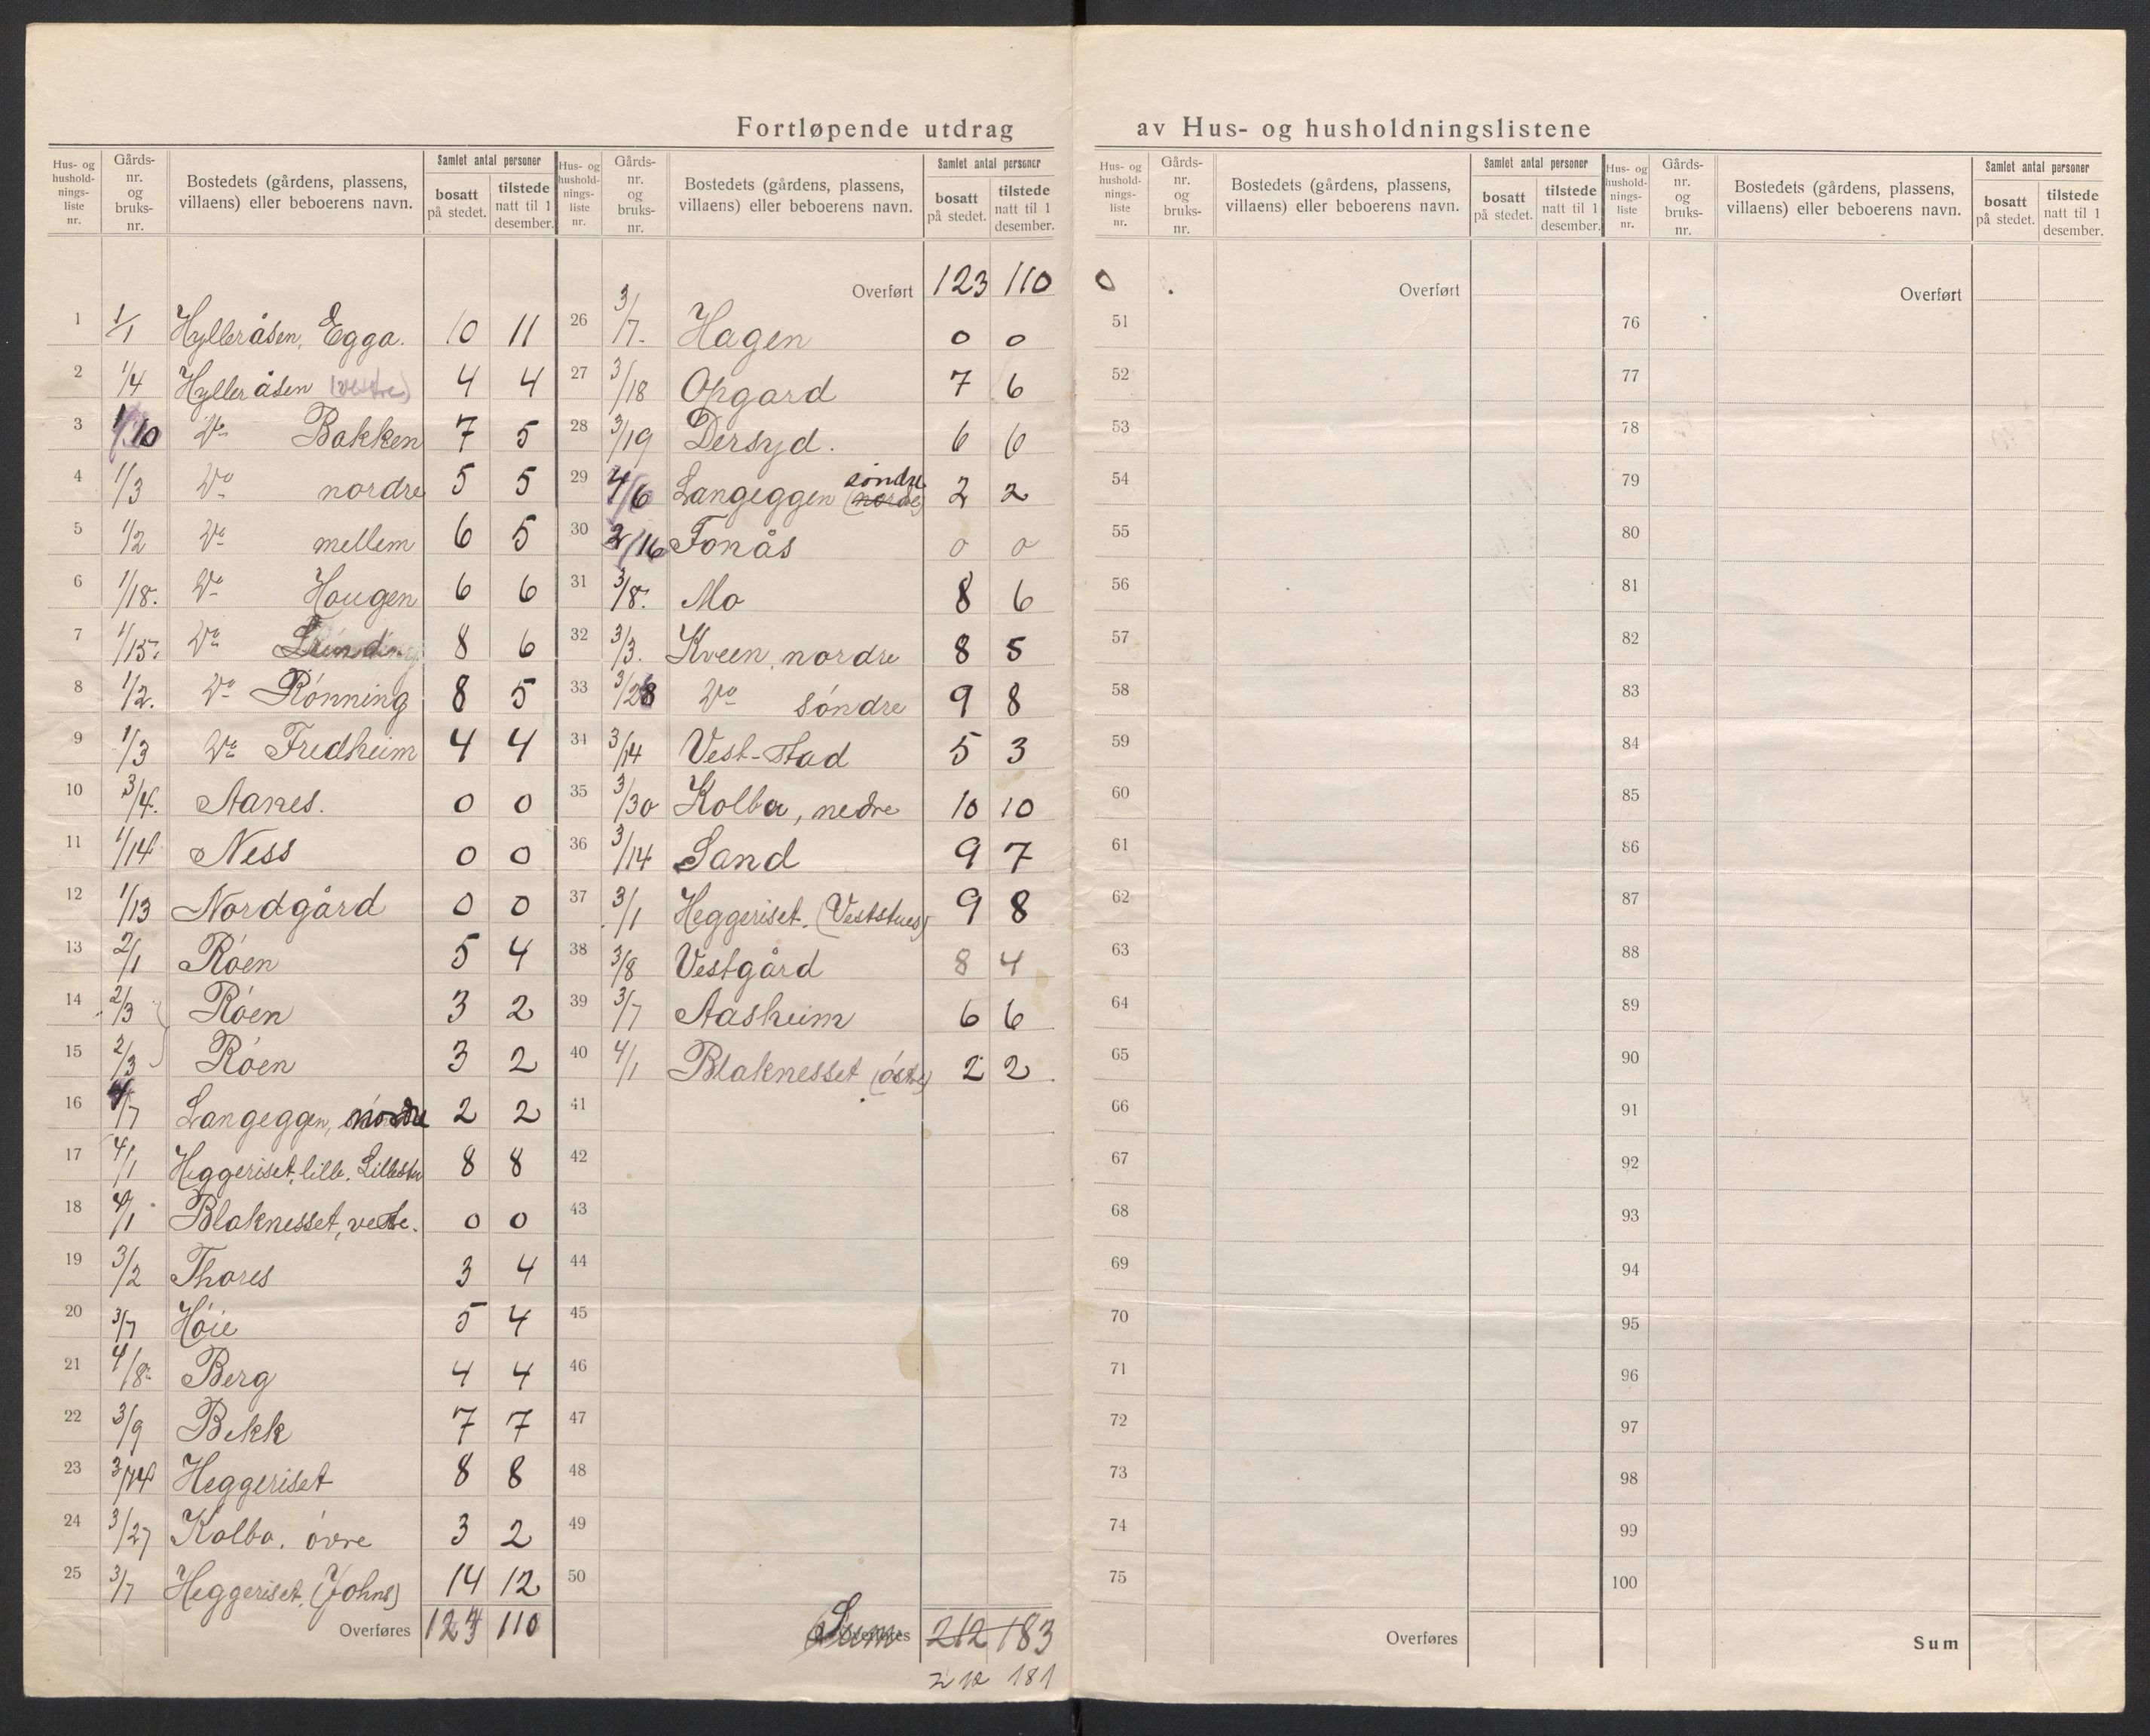 Fortløpende utdrag av Hus- og husholdningslistene
Hus- og husholdnings-liste nr. | Gårds-nr. og bruks-nr. | Bostedets (gårdens, plassens, villaens) eller beboerens navn. | Samlet antal personer bosatt på stedet. | tilstede natt til 1 desember.
1 1/1 Hylleråsen, Egga. 10 11
2 1/4 Hylleråsen (vestre) 4 4
3 1/10 Do Bakken 7 5
4 1/3 Do nordre 5 5
5 1/2 Do mellem 6 5
6 1/18. Do Haugen 6 6
7 1/15. Do 8 6
8 1/2. Do Rónning 8 5
9 1/3 Do Fredheim 4 4
10 3/4. Aanes. 0 0
11 1/14 Ness 0 0
12 1/13 Nordgård 0 0
13 2/1 Róen 5 4
14 2/3 Róen 3 2
15 2/3 Róen 3 2
16 4/7 Langeggen, nordre 2 2
17 4/1 Heggeriset, lille. Lillestu 8 8
18 4/1 Blaknesset, vestre. 0 0
19 3/2 Thores 3 4
20 3/7 Hóie 5 4
21 4/8. Berg 4 4
22 3/9 Bekk 7 7
23 3/14 Heggeriset 8 8
24 3/27 Kolbo. óvre 3 2
25 3/7 Heggeriset, (Johns) 14 12
Overføres 123 110
Hus- og husholdnings-liste nr. | Gårds-nr. og bruks-nr. | Bostedets (gårdens, plassens, villaens) eller beboerens navn. | Samlet antal personer bosatt på stedet. | tilstede natt til 1 desember.
Overført 123 110
26 3/7. Hagen 0 0
27 3/18 Opgard 7 6
28 3/19 Dersyd. 6 6
29 4/6 Langeggen (nordre) søndre 2 2
30 3/16 Fonås 0 0
31 3/8. Mo 8 6
32 3/3. Kveen, nordre 8 5
33 3/28 Do sóndre 9 8
34 3/14 Vest-stad 5 3
35 3/30 Kolbo, nedre 10 10
36 3/14 Sand 9 7
37 3/1 Heggeriset. (Veststues) 9 8
38 3/8 Vestgård 8 4
39 3/7 Aasheim 6 6
40 4/1 Blaknesset (óstre) 2 2
41
42
43
44
45
46
47
48
49
50
Overføres Sum 212 183
212 181
Hus- og husholdnings-liste nr. | Gårds-nr. og bruks-nr. | Bostedets (gårdens, plassens, villaens) eller beboerens navn. | Samlet antal personer bosatt på stedet. | tilstede natt til 1 desember.
0 Overført
51
52
53
54
55
56
57
58
59
60
61
62
63
64
65
66
67
68
69
70
71
72
73
74
75
Overføres
Hus- og husholdnings-liste nr. | Gårds-nr. og bruks-nr. | Bostedets (gårdens, plassens, villaens) eller beboerens navn. | Samlet antal personer bosatt på stedet. | tilstede natt til 1 desember.
Overført
76
77
78
79
80
81
82
83
84
85
86
87
88
89
90
91
92
93
94
95
96
97
98
99
100
Sum